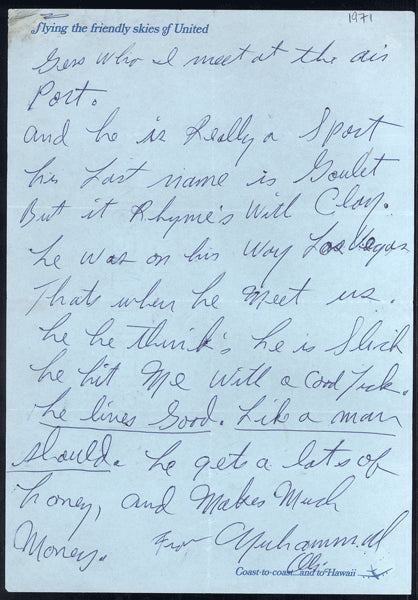 1971
Flying the friendly skies of United
Gess who I meet at the air
Port.
and he is Really a Sport
his Last name is Goulet
But it Rhyme's with Clay.
he was on his way Las Vegas
Thats when he meet us.
he he think's he is Slick
he hit Me with a Card Trick.
he lives Good. Like a man
should. he gets a lots of
honey, and Makes Much
Money. From Muhammad
Ali
Coast-to-coast and to Hawaii